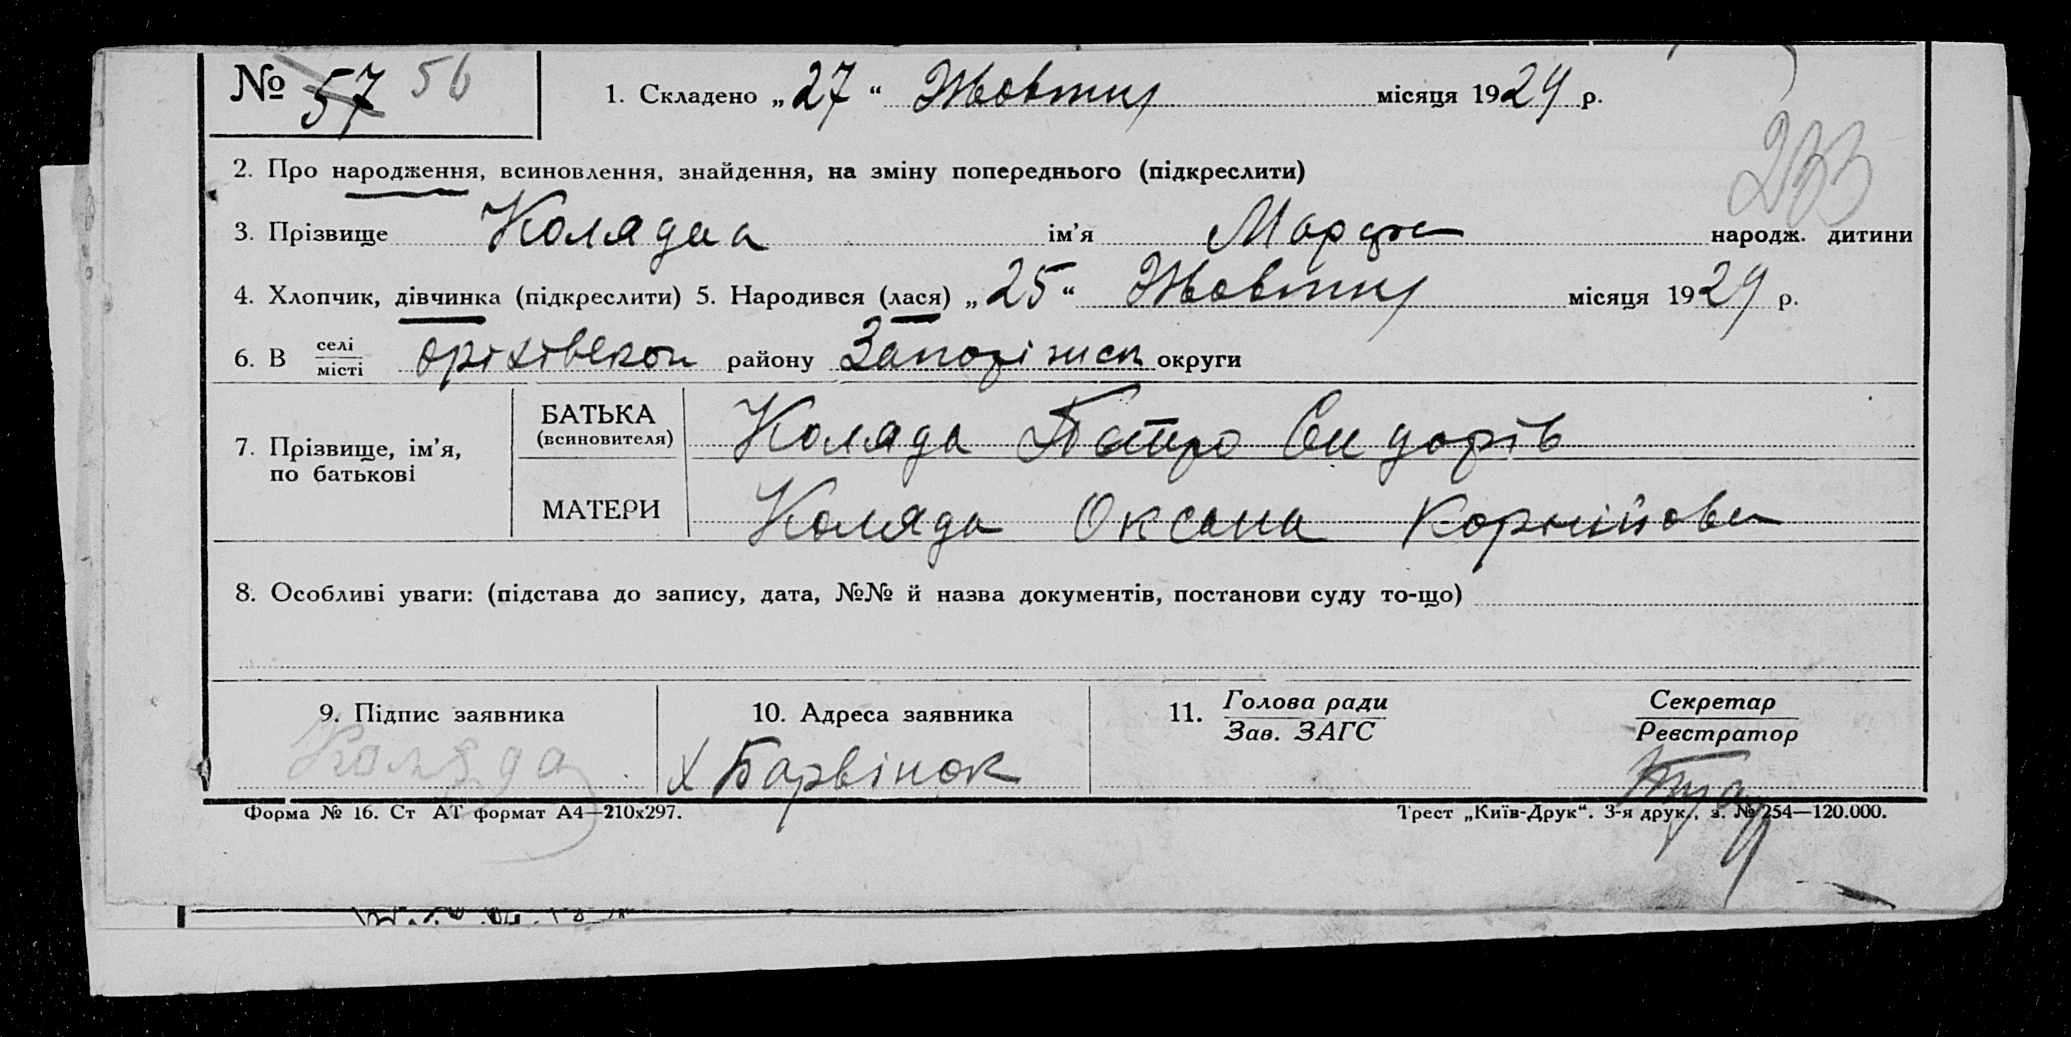 № 57 56
1. Складено „27“ Жовтня місяця 1929 р.
233
2. Про народження, всиновлення, знайдення, на зміну попереднього (підкреслити)
3. Прізвище Коляда ім’я Марфа народж. дитини
4. Хлопчик, дівчинка (підкреслити) 5. Народився (лася) „25“ Жовтня місяця 1929 р.
6. В селі місті Оріхівськом району Запоріжск округи
7. Прізвище, ім’я, по батькові
БАТЬКА (всиновителя) Коляда Петро Сидорів
МАТЕРИ Коляда Оксана Корнійовна
8. Особливі уваги: (підстава до запису, дата, №№ й назва документів, постанови суду то-що)
9. Підпис заявника
10. Адреса заявника
11. Голова ради Зав. ЗАГС
Секретар Реєстратор
Коляда
х Барвінок
Форма № 16. Ст АТ формат А4—210х297.
Трест „Київ-Друк“. 3-я друк., з. № 254—120.000.